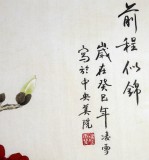 前程似錦
歲在癸巳年凌雪
寫於中央美院